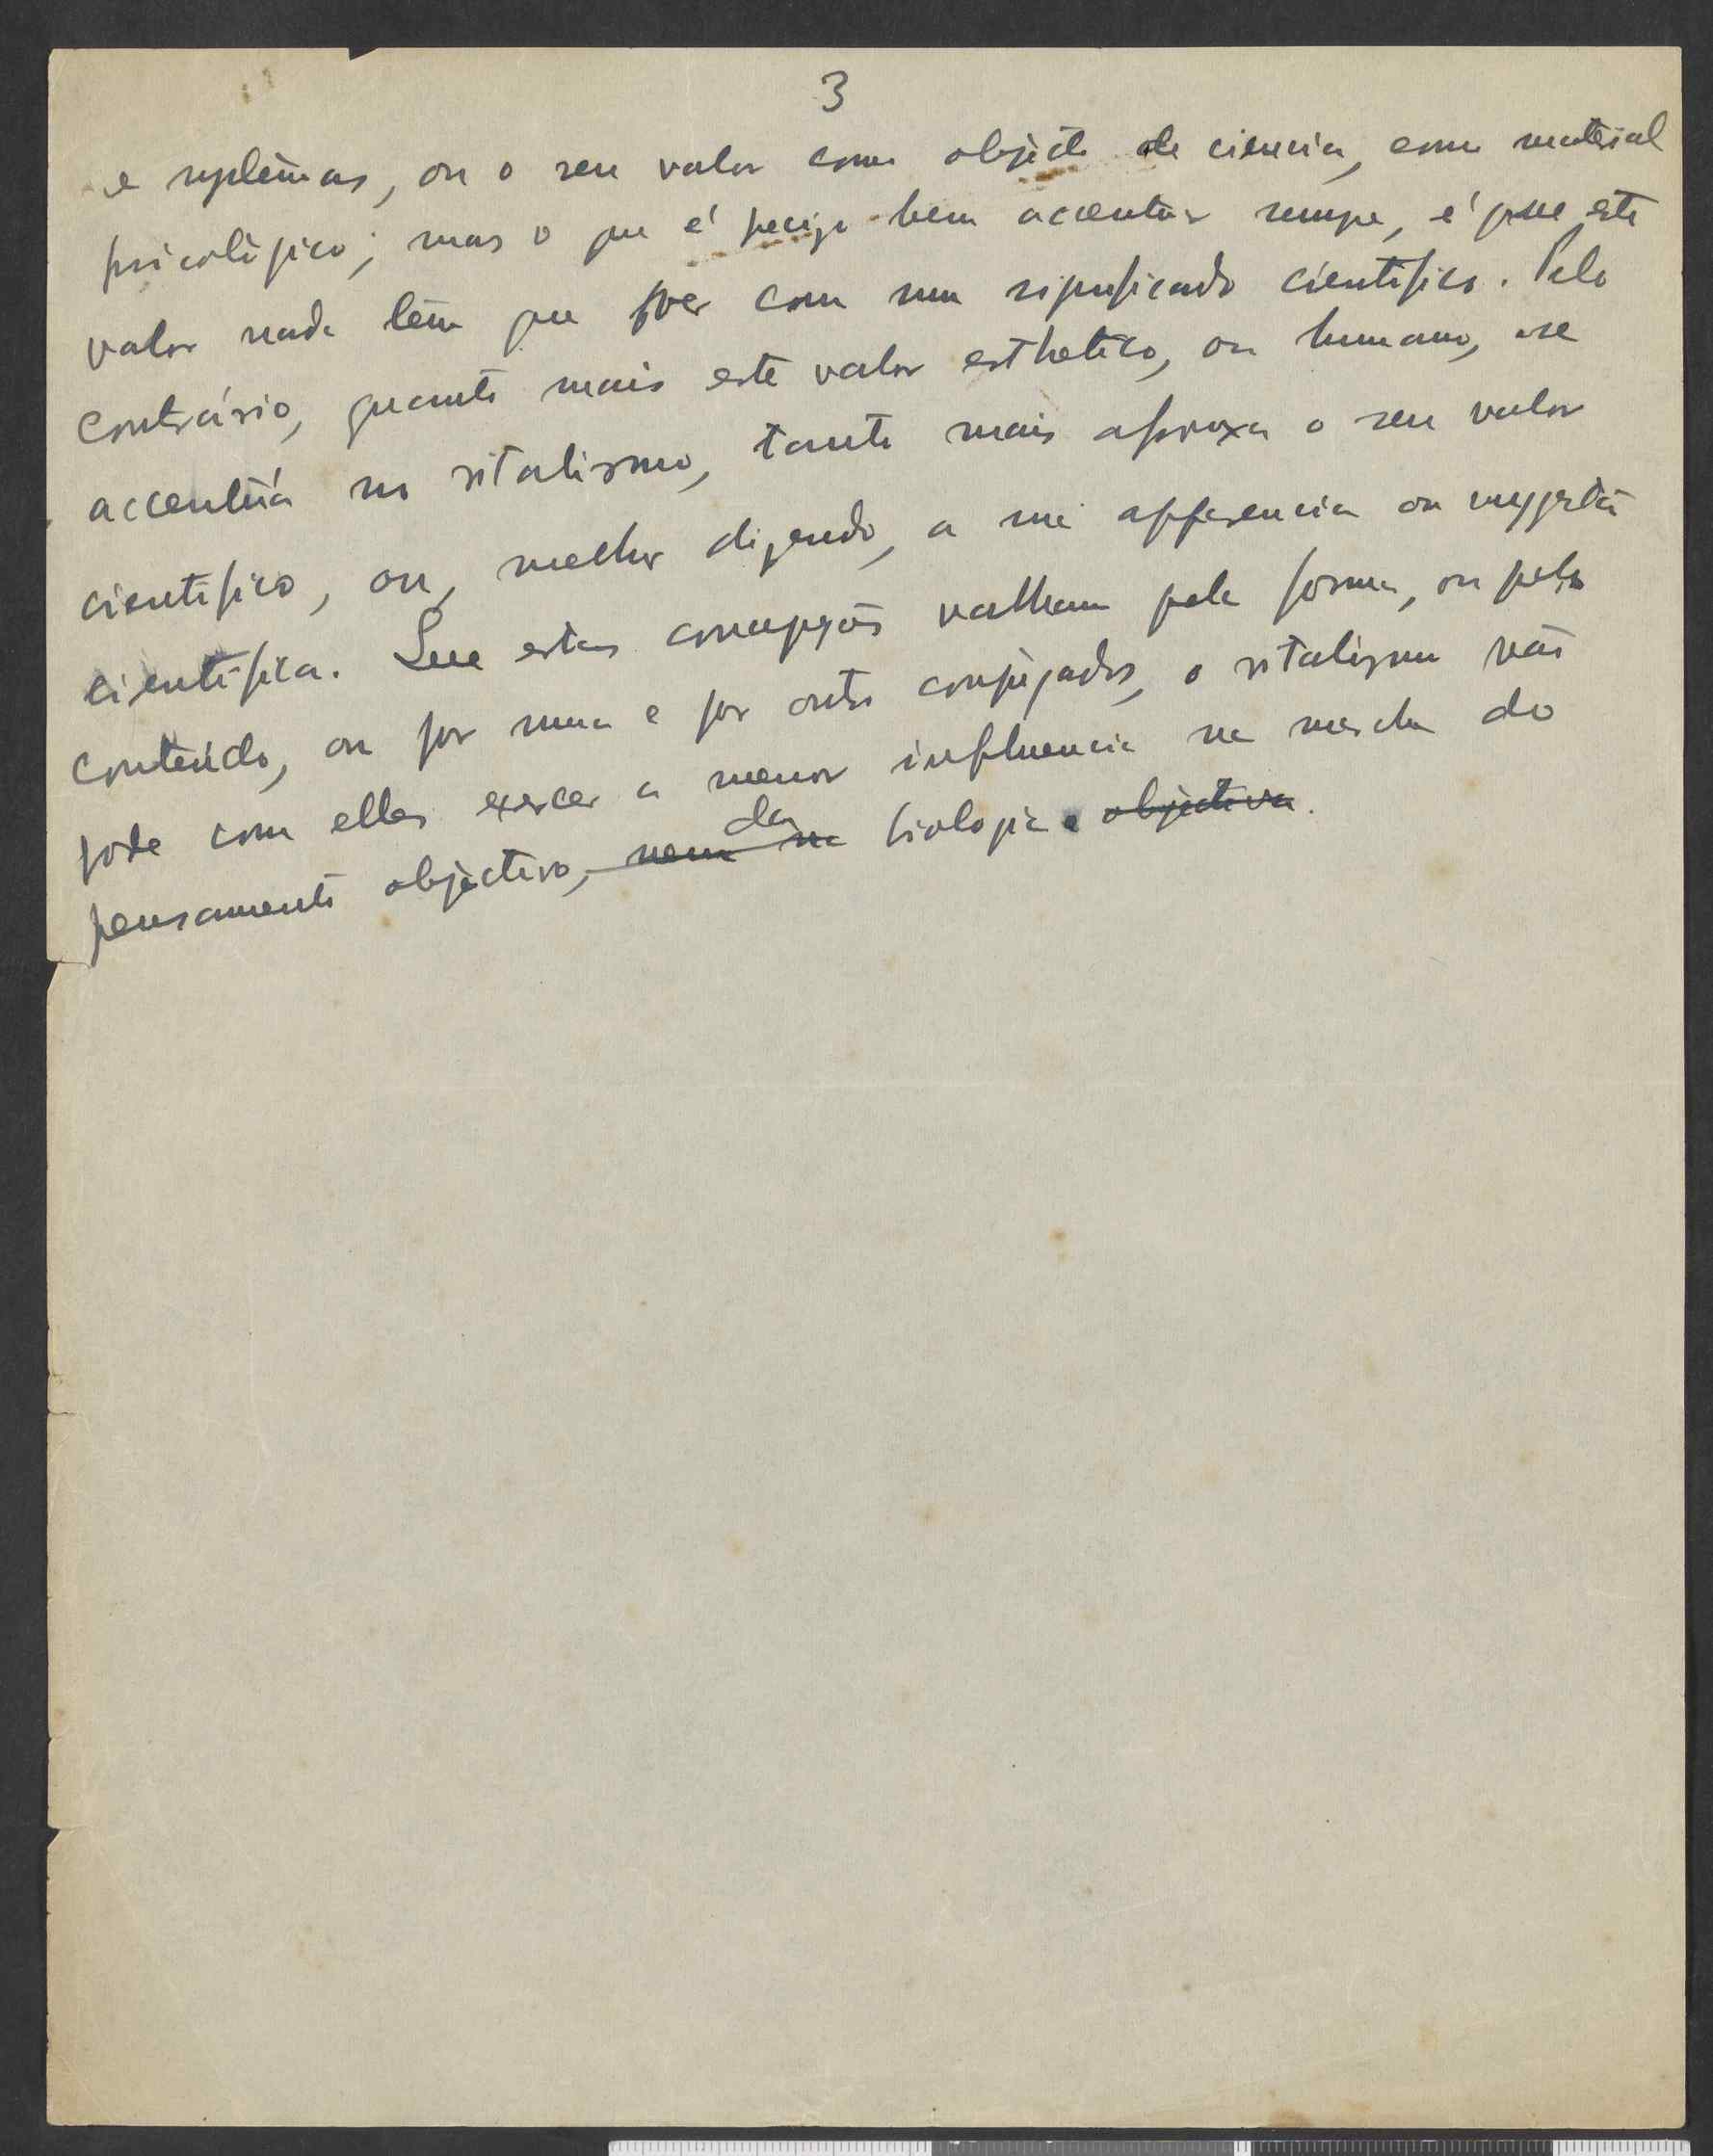 3
e systemas, ou o seu valor como objecto de ciencia, como material
psicológico; mas o que é preciso bem accentuar sempre, é que este
valor nada tem que ver com um significado cientifico. Pelo
contrário, quanto mais este valor esthetico, ou humano, se
accentúa no vitalismo, tanto mais afrouxa o seu valor
cientifico, ou, melhor dizendo, a sua apparencia ou suggestão
cientifica. Que estas concepções valham pela forma, ou pelo
conteúdo, ou por uma e por outro conjugados, o vitalismo não
pode com ellas exercer a menor influencia na marcha do
pensamento objectivo, nem na da biologia objectiva.